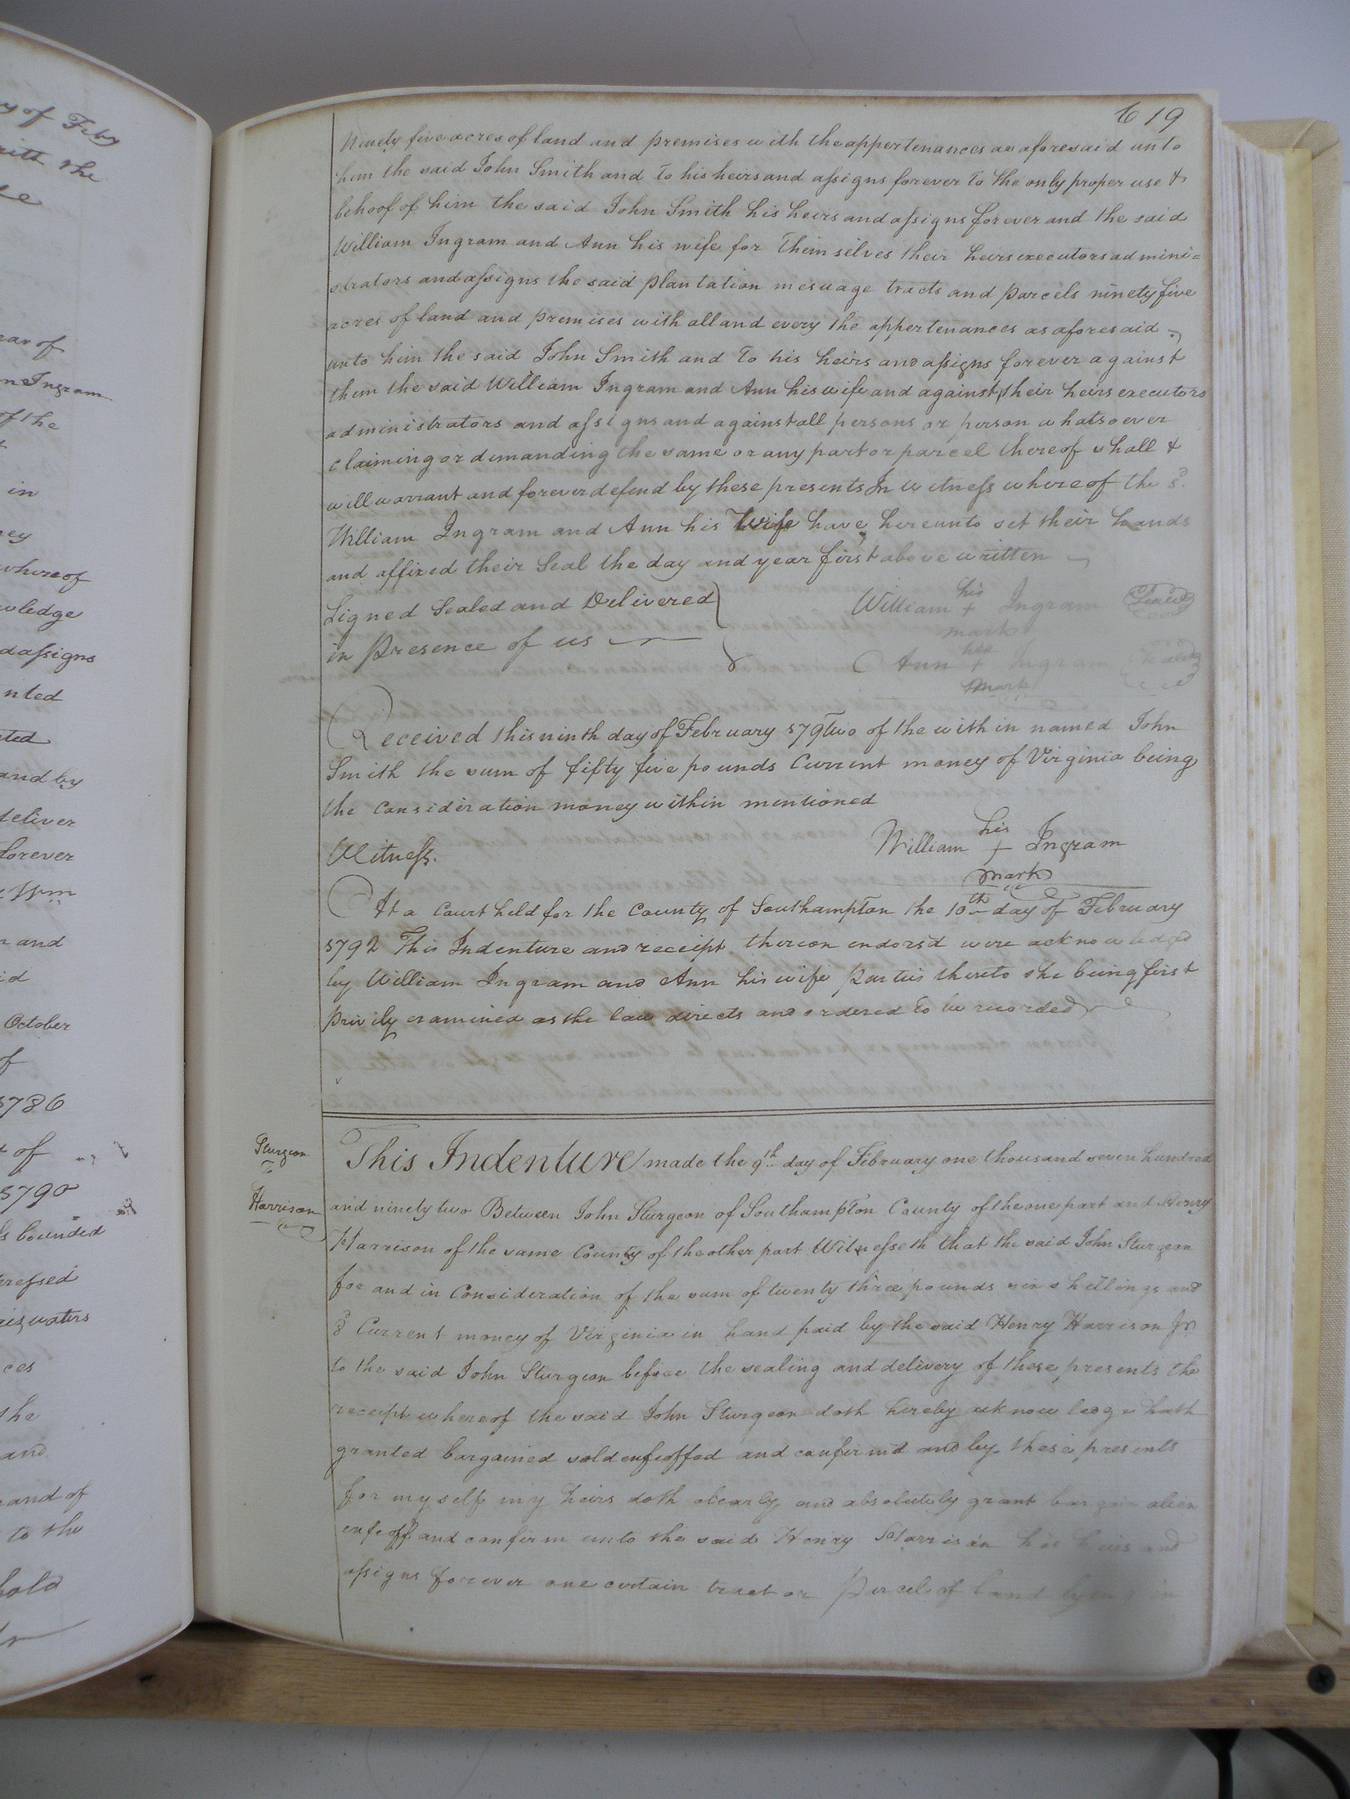 y of Feby
with the
ear of
n Ingram
of the
in
ey
whereof
wledge
d assigns
nted
ted
and by
deliver
forever
n and
id
October
of
5786
t of
5790
s bounded
pressed
waters
ces
the
and
and of
to the
hold
619
Ninety five acres of land and premises with the appertenances as aforesaid unto
him the said John Smith and To his heirs and assigns forever To the only proper use &
behoof of him the said John Smith his heirs and assigns forever and the said
William Ingram and Ann his wife for Themselves their heirs executors admini=
strators and assigns the said plantation mesuage tracts and parcels ninety five
acres of land and premises with all and every the appertenances as aforesaid
unto him the said John Smith and To his heirs and assigns forever against
them the said William Ingram and Ann his wife and against their heirs executors
administrators and assigns and against all persons or person whatsoever
claiming or demanding the same or any part or parcel thereof shall &
will warrant and forever defend by these presents In witness whereof the sd.
William Ingram and Ann his Wife have hereunto set their hands
and affixed their Seal the day and year first above written
Signed Sealed and Delivered
in Presence of us
William his + mark Ingram (Seal)
Ann her + mark Ingram (Seal)
Received this ninth day of February 579two of the with in named John
Smith the sum of fifty five pounds Current money of Virginia being
the consideration money within mentioned
Witness.
William his + mark Ingram
At a Court held for the County of Southampton the 10th day of February
5792 This Indenture and receipt thereon endors'd were acknowledged
by William Ingram and Ann his wife parties thereto she being first
privily examined as the law directs and ordered To be recorded
Sturgeon
To
Harrison
This Indenture made the 9th day of February one thousand seven hundred
and ninety two Between John Sturgeon of Southampton County of the one part and Henry
Harrison of the same County of the other part Witnesseth that the said John Sturgeon
for and in Consideration of the sum of twenty three pounds six shillings and
8d Current money of Virginia in hand paid by the said Henry Harrison Jr
to the said John Sturgeon before the sealing and delivery of these presents the
receipt whereof the said John Sturgeon doth hereby aknowledge hath
granted bargained sold enfeoffed and confirmd and by these presents
for myself my heirs doth clearly and absolutely grant bargain alien
enfeoff and confirm unto the said Henry Harrison his heirs and
assigns forever one certain tract or Parcel of land lying in